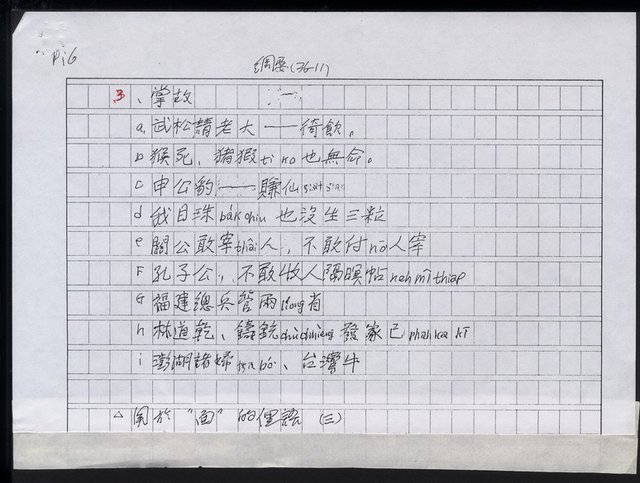 P16
綱要(36-11)
3、掌故
a. 武松請老大——徛飲。
b 猴死、猪猳ti ko也無命。
c 申公豹——賺仙
d 我目珠bák chiu也沒生三粒
e 關公敢宰thâi人，不敢付hō人宰
F 孔子公，不敢收人隔暝帖keh mî thiap
G 福建總兵管兩liong省
h 林道乾、鑄銃chù chhièng發家己phah ka kī
i 澎湖諸婦 bó͘、台灣牛
△ 関於“面”的俚語 (三)